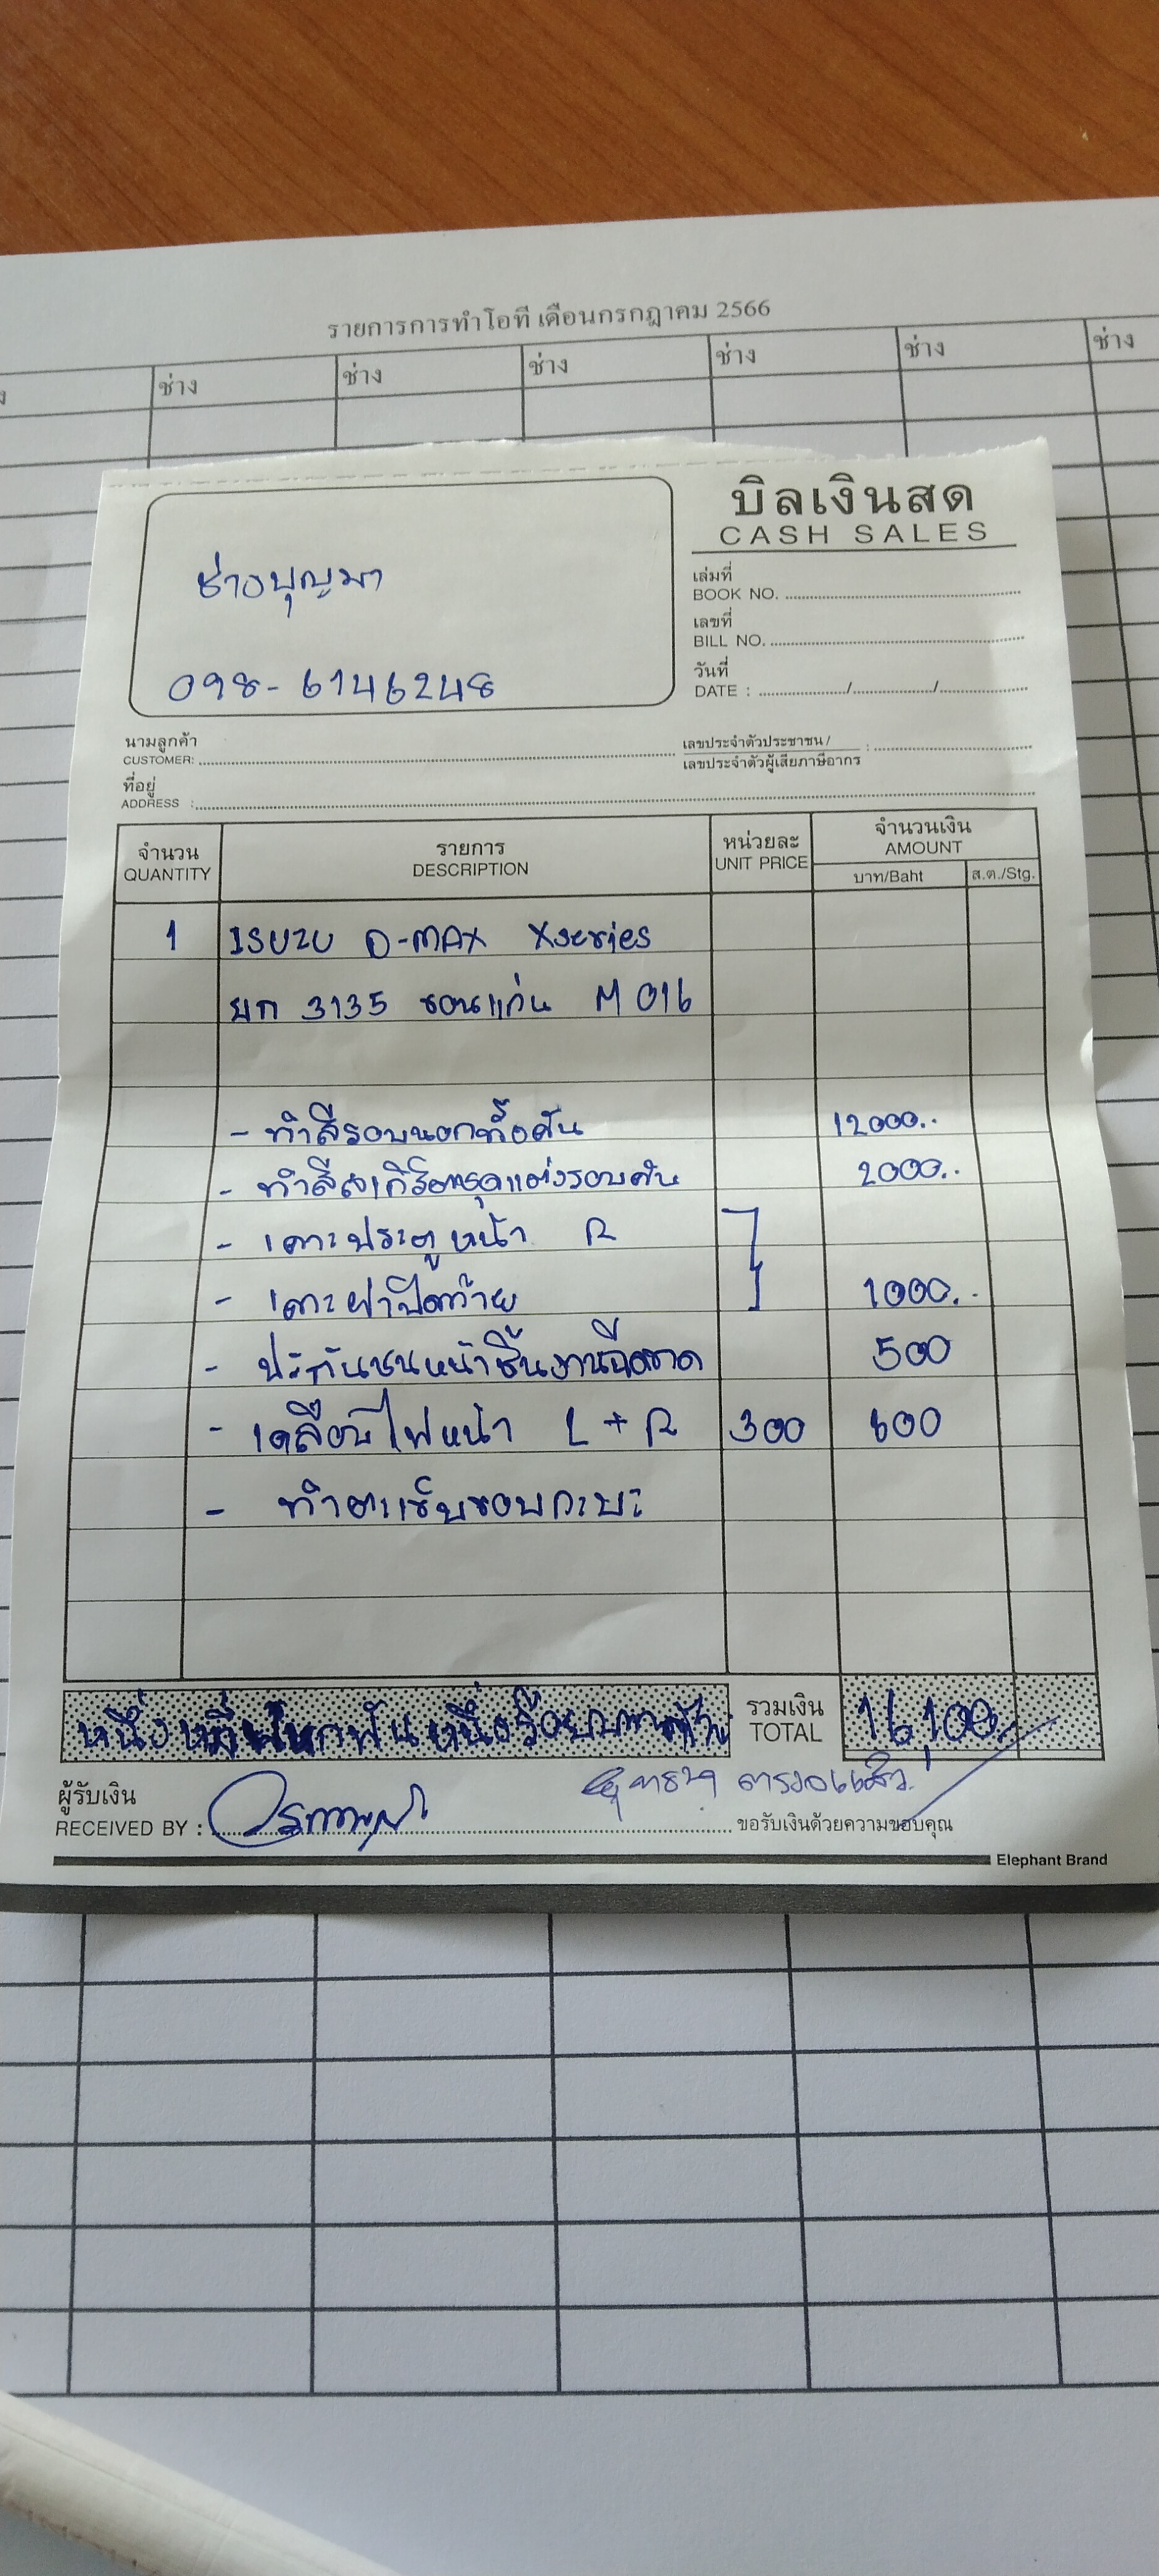 รายการการทำโอที เดือนกรกฎาคม 2566
ช่าง ช่าง ช่าง ช่าง ช่าง ช่าง
บิลเงินสด
CASH SALES
ช่างบุญมา
098-6146248
เล่มที่
BOOK NO.
เลขที่
BILL NO.
วันที่
DATE : / /
นามลูกค้า
CUSTOMER:
เลขประจำตัวประชาชน /
เลขประจำตัวผู้เสียภาษีอากร :
ที่อยู่
ADDRESS :
จำนวน รายการ หน่วยละ จำนวนเงิน
QUANTITY DESCRIPTION UNIT PRICE AMOUNT
บาท/Baht ส.ต./Stg.
1 ISUZU D-MAX Xseries
ยก 3135 ขอนแก่น M016
- ทำสีรอบนอกทั้งคัน 12000..
- ทำสีสเกิร์ตชุดแต่งรอบคัน 2000..
- เคาะประตูหน้า R
- เคาะฝาปิดท้าย 1000..
- ประกันชนหน้าชิ้นงานฉีกขาด 500
- เคลือบไฟหน้า L + R 300 600
- ทำตะเข็บขอบกะบะ
หนึ่งหมื่นหกพันหนึ่งร้อยบาทถ้วน
รวมเงิน
TOTAL
16,100.
ตรวจแล้ว
ผู้รับเงิน
RECEIVED BY :
ขอรับเงินด้วยความขอบคุณ
Elephant Brand